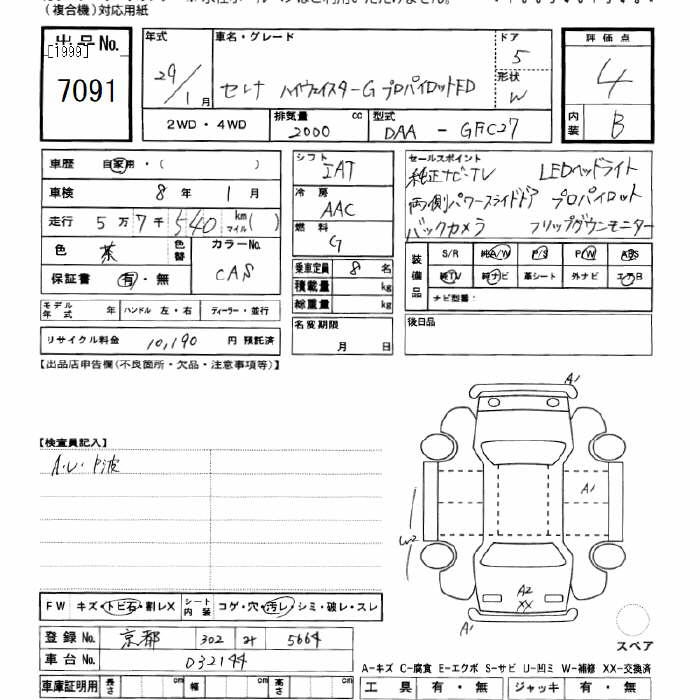 (複合機)対応用紙
出品No.
[1999]
7091
年式 車名・グレード ドア 評価点
29/1月 セレナ ハイウェイスターG プロパイロットED 5 4
形状 W
2WD・4WD 排気量 2000 cc 型式 DAA - GFC27 内装 B
車歴 自家用・( )
車検 8年 1月
走行 5万7千540 km マイル( )
色 茶 色替 カラーNo. CAS
保証書 有・無
モデル年式 年 ハンドル 左・右 ディーラー・並行
リサイクル料金 10,190 円 預託済
シフト IAT
冷房 AAC
燃料 G
乗車定員 8 名
積載量 kg
総重量 kg
名変期限 月 日
セールスポイント
純正ナビ・TV LEDヘッドライト
両側パワースライドドア プロパイロット
バックカメラ フリップダウンモニター
装備品 S/R 純A/W P/S P/W ABS
純TV 純ナビ 革シート 外ナビ エアB
ナビ型番:
後日品
【出品店申告欄(不良箇所・欠品・注意事項等)】
【検査員記入】
A・U・P波
A1
A1
W2
A2
XX
A1
FW キズ・トビ石・割レX シート内装 コゲ・穴・汚レ・シミ・破レ・スレ
登録No. 京都 302 5664
車台No. 032144
車庫証明用 長さ cm 幅 cm 高さ cm
スペア
A-キズ C-腐食 E-エクボ S-サビ U-凹ミ W-補修 XX-交換済
工具 有・無 ジャッキ 有・無